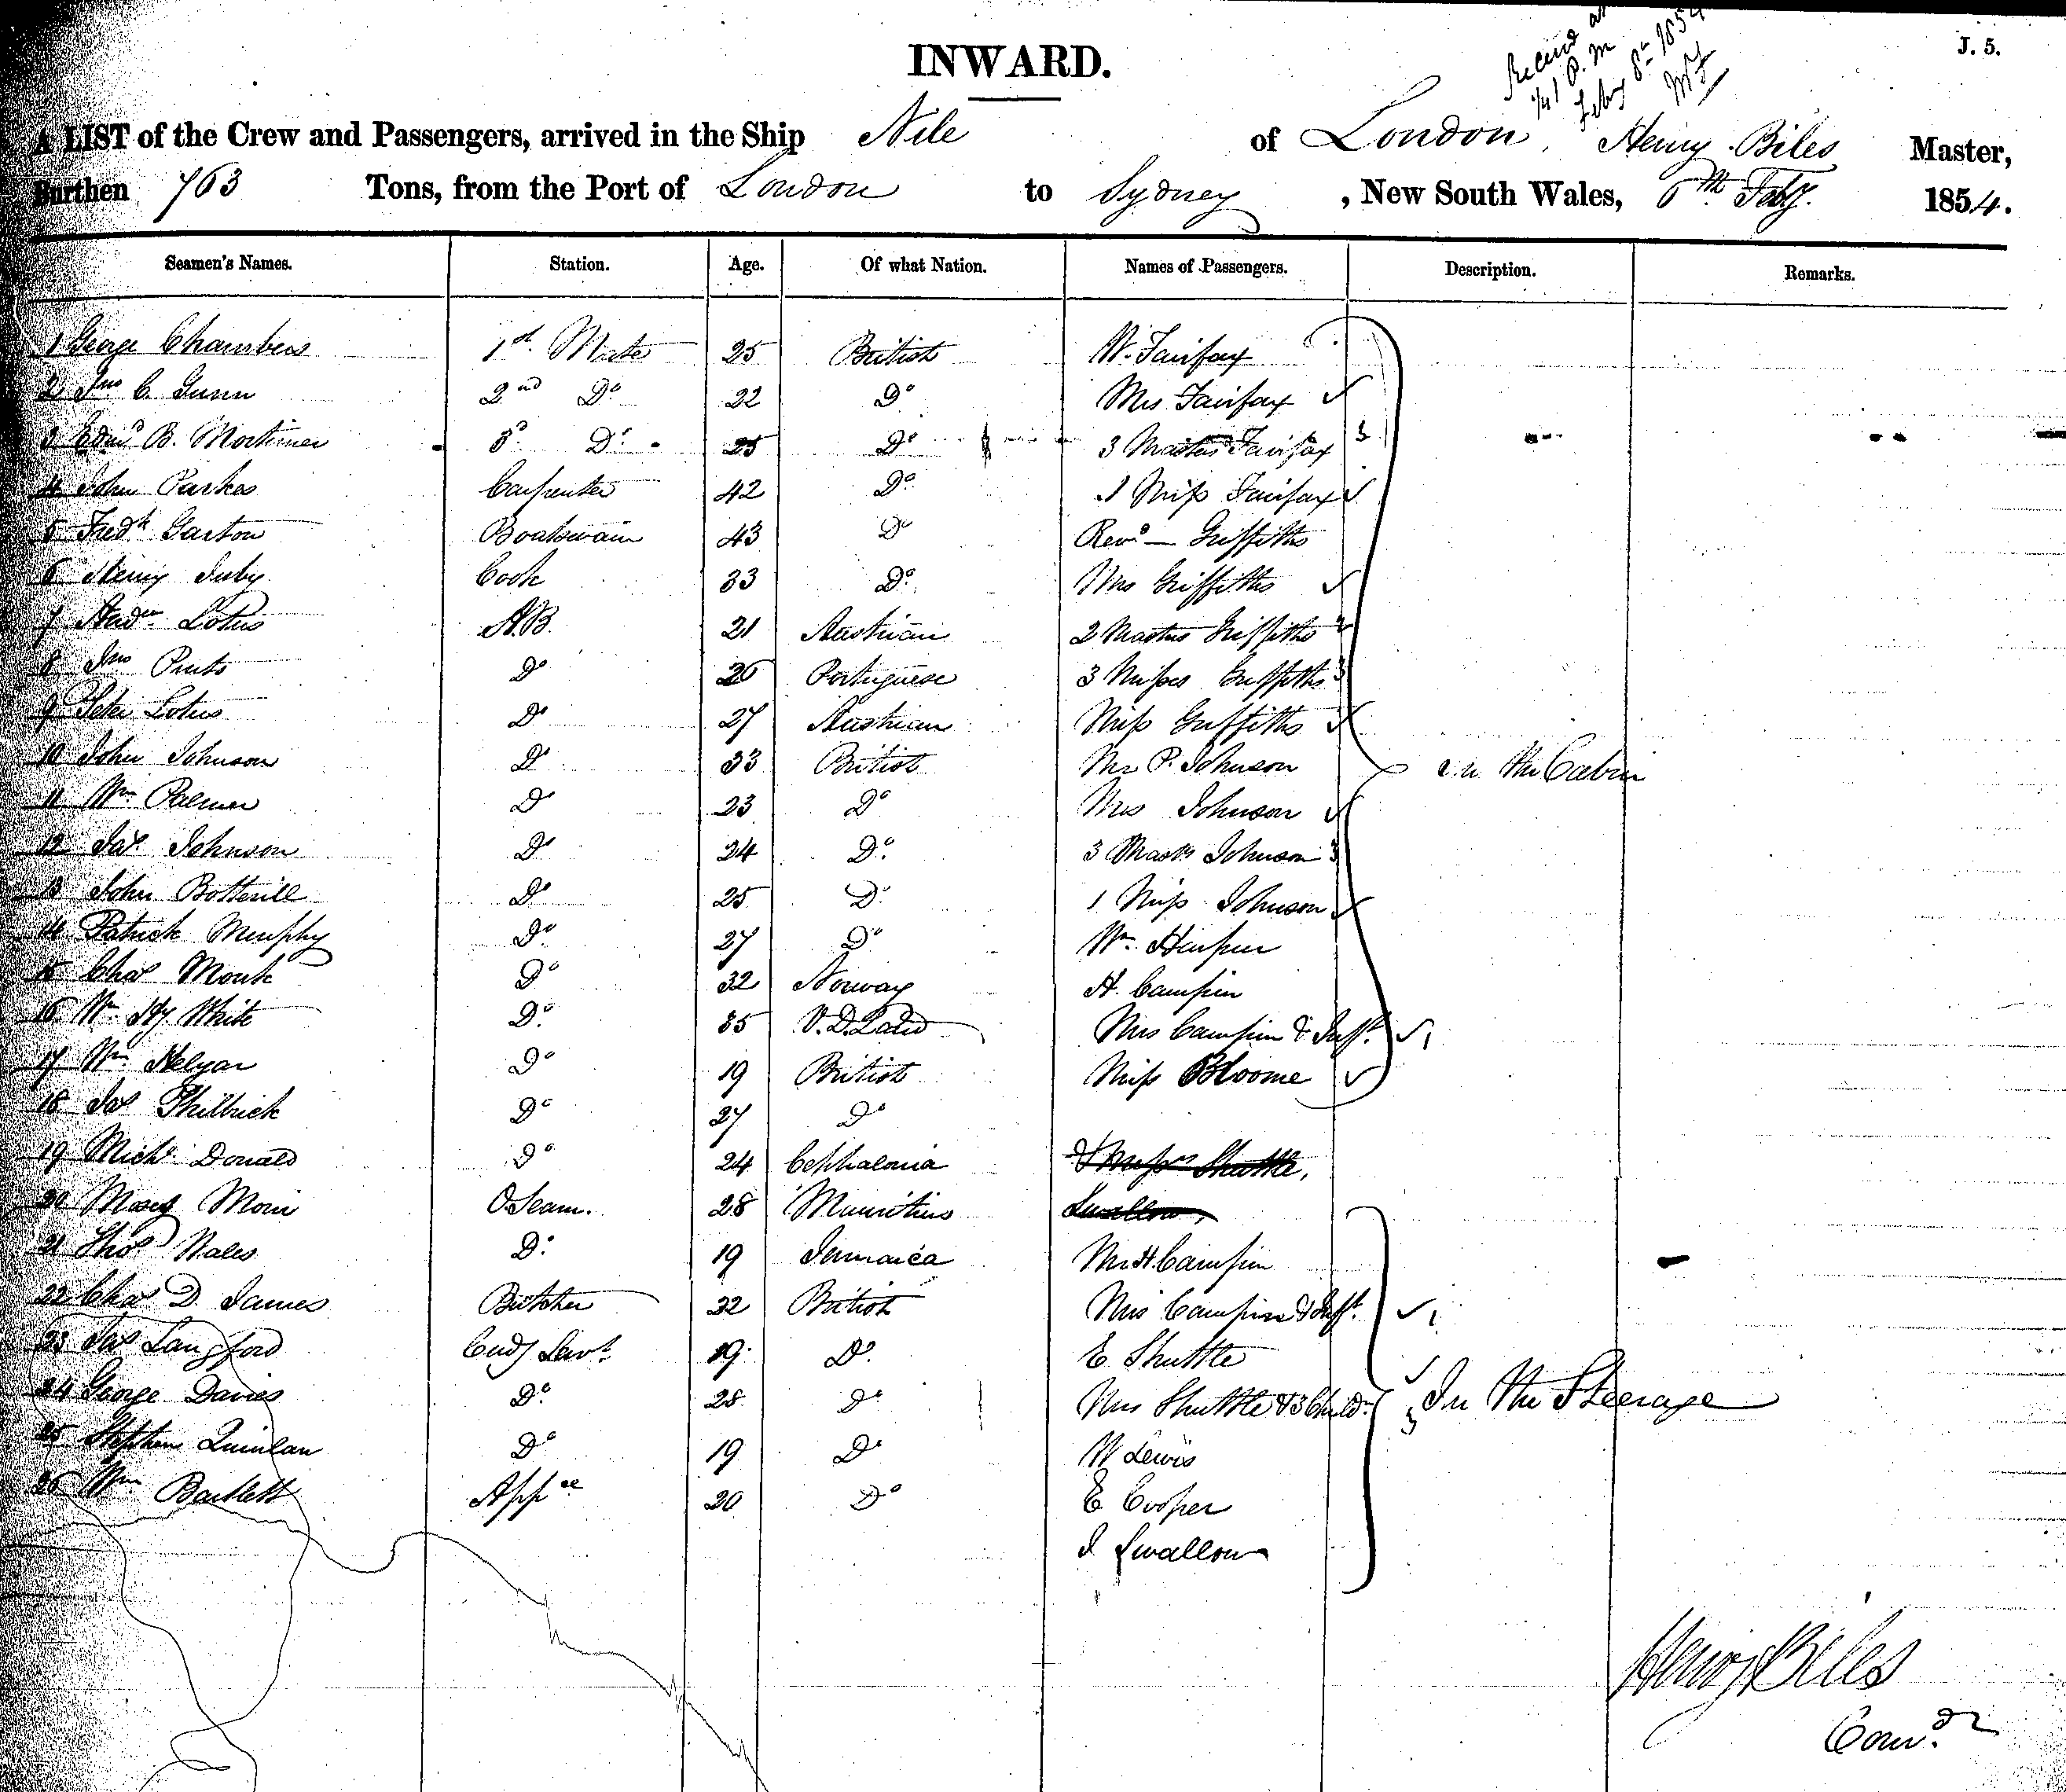 J. 5.
INWARD.
Received at
1/4 1 P.M
Feby 8th 1854
A LIST of the Crew and Passengers, arrived in the Ship Nile of London, Henry Biles Master,
Burthen 763 Tons, from the Port of London to Sydney, New South Wales, 6th Feby. 1854.
Seamen's Names. Station. Age. Of what Nation. Names of Passengers. Description. Remarks.
1 George Chambers 1st Mate 25 British W. Fairfax
2 Jno C. Gunn 2nd Do 22 Do Mrs Fairfax
3 Edmd B. Mortimer 3d Do 25 Do 3 Masters Fairfax 3
4 John Parkes Carpenter 42 Do 1 Miss Fairfax
5 Fredk Garton Boatswain 43 Do Revd — Griffiths
6 Henry Juby Cook 33 Do Mrs Griffiths
7 Lotus A.B. 21 Austrian 2 Masters Griffiths 2
8 Jno Do 26 Portuguese 3 Misses Griffiths 3
9 Peter Lotus Do 27 Austrian Miss Griffiths
10 John Johnson Do 33 British Mr P. Johnson in the Cabin
11 Wm Palmer Do 23 Do Mrs Johnson
12 Jas Johnson Do 24 Do 3 Mastrs Johnson 3
13 John Botterill Do 25 Do 1 Miss Johnson
14 Patrick Murphy Do 27 Do Wm Harpur
15 Chas Monk Do 32 Norway H. Campin
16 Wm Hy White Do 35 V.D. Land Mrs Campin & Inft. 1
17 Wm Helyar Do 19 British Miss Bloome
18 Jas Philbrick Do 27 Do
19 Michl Donald Do 24 Cephalonia & Misses Shuttle,
20 Moses Moir O Seam. 28 Mauritius Swallow,
21 Thos Wales Do 19 Jamaica Mr H Campin
22 Chas D. James Butcher 32 British Mrs Campin & Inft. 1
23 Jas Langford Cudy Servt. 19 Do E. Shuttle
24 George Davies Do 28 Do Mrs Shuttle & 3 Child. 3 In the Steerage
25 Stephen Quinlan Do 19 Do W Lewis
26 Wm Bartlett Appce 20 Do E Cooper
J Swallow
Henry Biles
Comdr